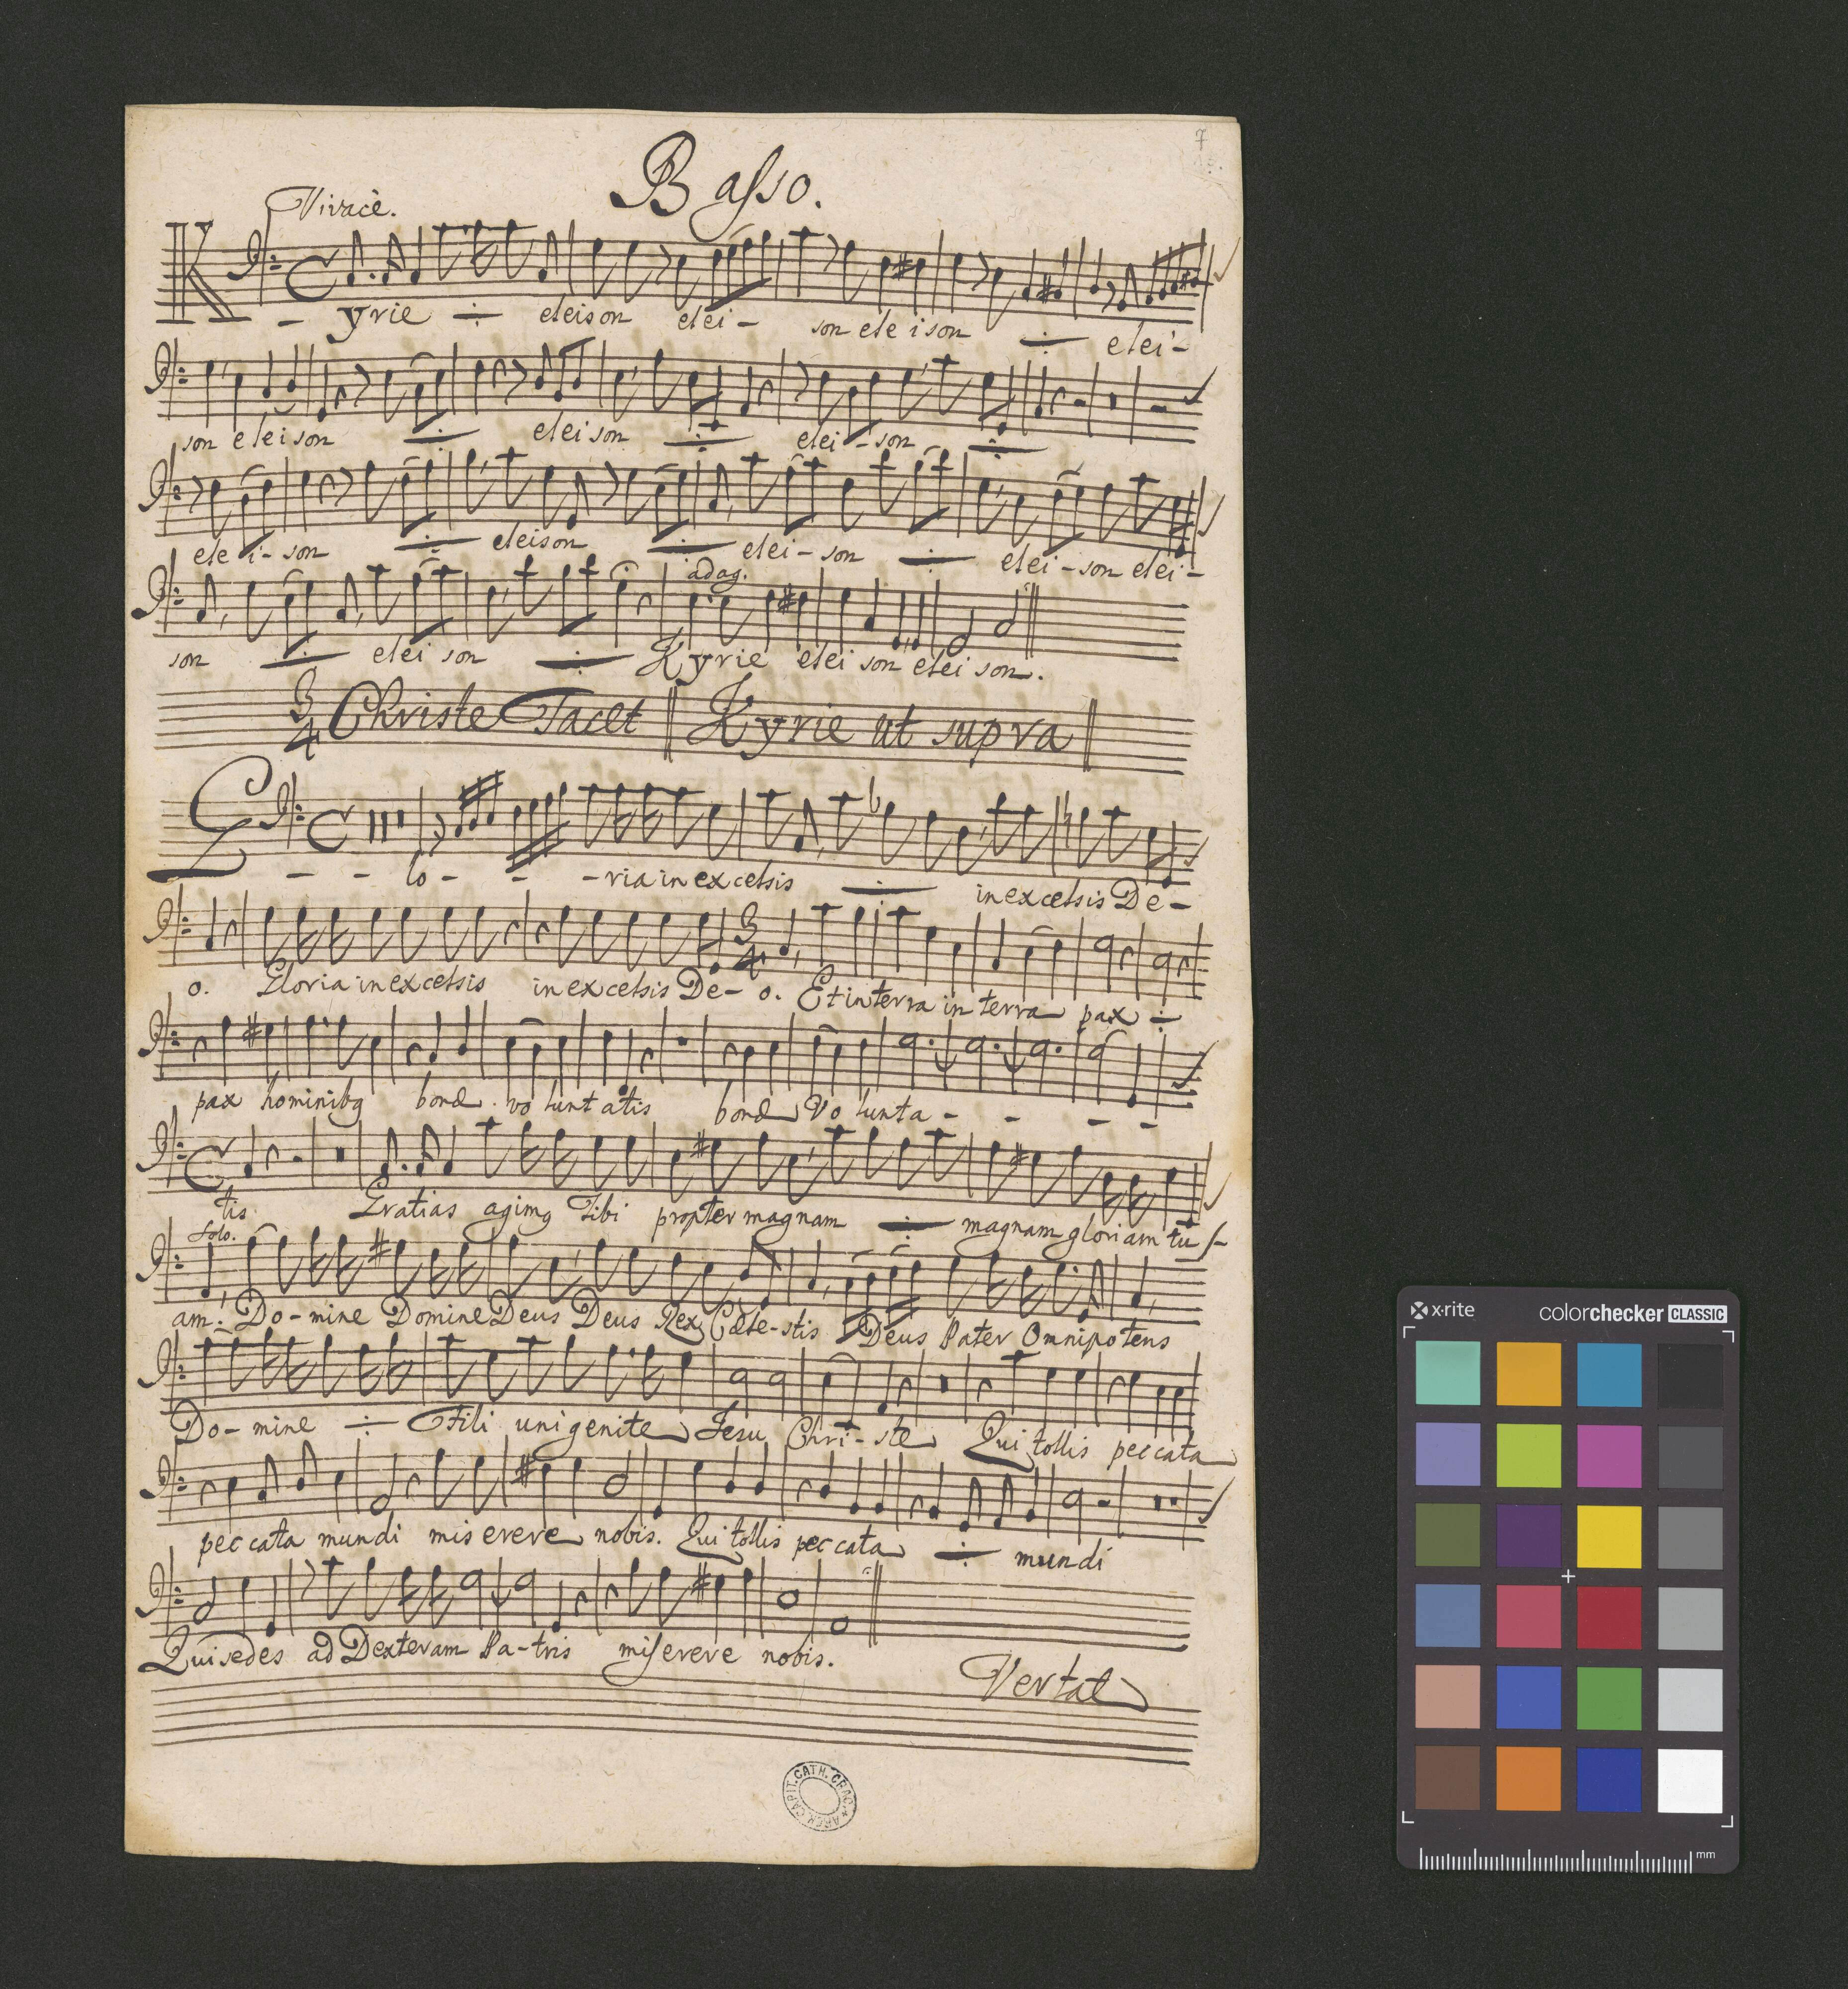 7
Basso.
Vivacè.
Kyrie ÷ eleison elei- son ele ison ÷ elei-
son eleison ÷ eleison ÷ elei-son ÷
ele i-son ÷ eleison ÷ elei-son ÷ elei-son elei-
adag.
son ÷ elei son ÷ Kyrie elei son elei son.
3/4 Christe Tacet Kyrie ut supra
G - - lo- - -ria in excelsis ÷ in excelsis De-
o. Gloria in excelsis in excelsis De- o. Et in terra in terra pax ÷
pax hominibq bonæ voluntatis bonæ Volunta - - - -
tis Gratias agimq Tibi propter magnam ÷ magnam gloriam tu-
Solo.
am. Do-mine Domine Deus Deus Rex Cæle-stis Deus Pater Omnipotens
Do-mine ÷ Fili unigenite Jesu Chri-ste Qui tollis peccata
peccata mundi miserere nobis. Qui tollis peccata ÷ mundi
Qui sedes ad Dexteram Pa-tris miſerere nobis.
Vertat
ARCH. CAPIT. CATH. CRAC.
x·rite colorchecker CLASSIC
mm